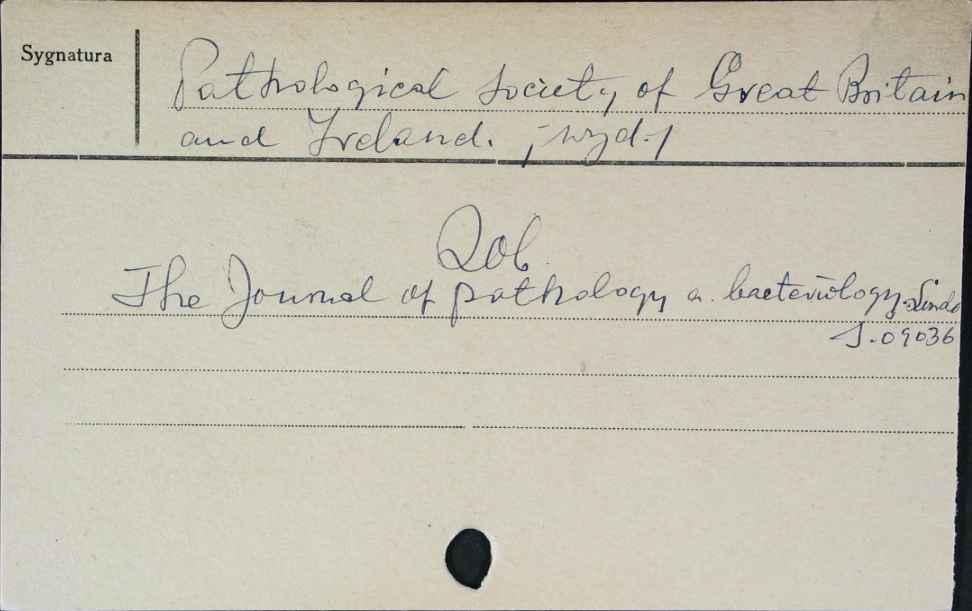 Sygnatura
Pathological Society of Great Britain
and Ireland. /wyd./
Zob.
The Journal of pathology a. bacteriology.
S.09036